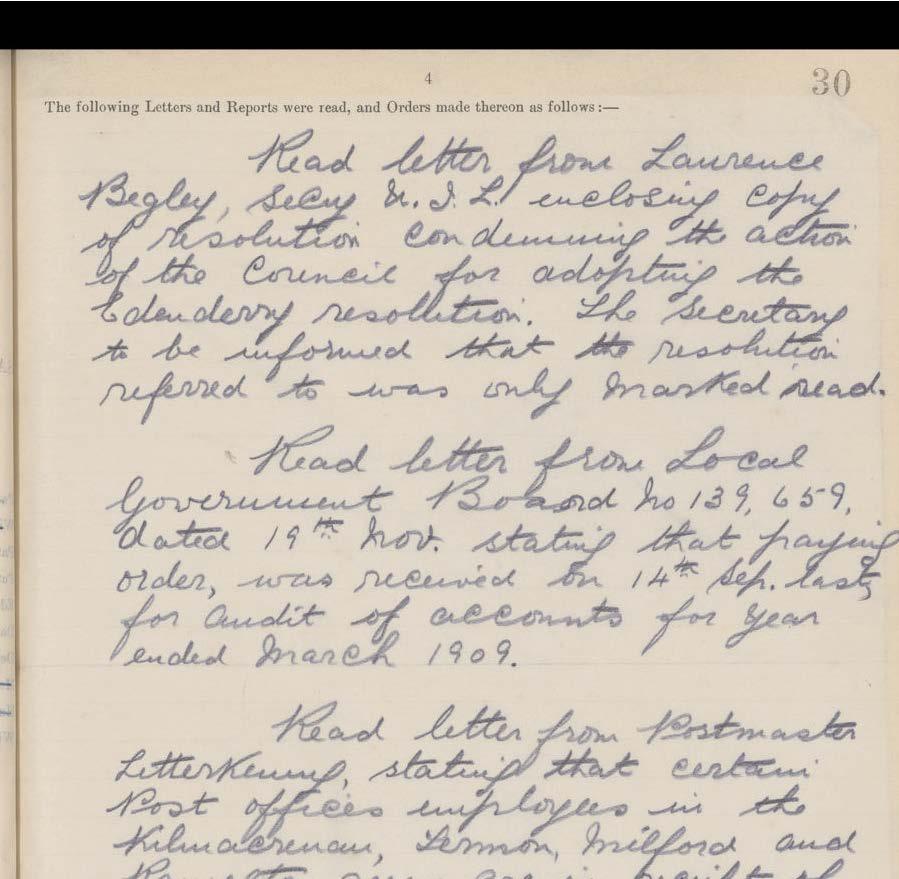 4
30
The following Letters and Reports were read, and Orders made thereon as follows :—
Read letter from Laurence
Begley, Secy U. I. L. enclosing copy
of resolution condemning the action
of the Council for adopting the
Edenderry resolution. The Secretary
to be informed that the resolution
referred to was only marked read.
Read letter from Local
Government Board No 139,659,
dated 19th Nov. stating that paying
order, was received on 14th Sep. last,
for audit of accounts for year
ended March 1909.
Read letter from Postmaster
Letterkenny, stating that certain
Post offices employees in the
Kilmacrenan, Termon, Milford and